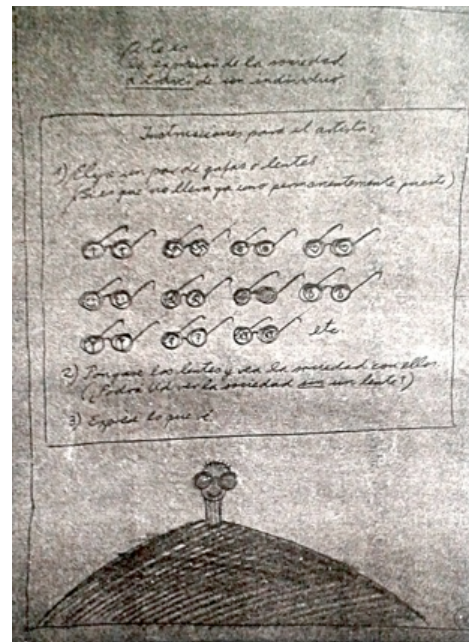 Arte es
la expresión de la sociedad
a través de un individuo
Instrucciones para el artista:
1) Elija un par de gafas o lentes
(Si es que no lleva ya uno permanentemente puesto)
etc.
2) Póngase los lentes y vea la sociedad con ellos
(¿Podrá Ud ver la sociedad sin un lente?)
3) Exprese lo que vé